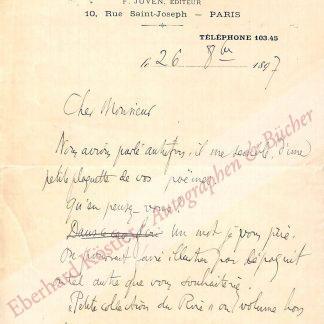 F. JUVEN, ÉDITEUR
10, Rue Saint-Joseph — PARIS
TÉLÉPHONE 103.45
le 26 8bre 1897
Cher Monsieur
Nous avions parlé autrefois, il me semble, d'une
petite plaquette de vos poèmes
Qu'en pensez-vous?
Dans ce cas un mot je vous prie.
On pourrait faire illustrer par
tel autre que vous souhaiteriez.
"Petite collection du Rire" ou volume hors
Eberhard Köstler Autographen & Bücher